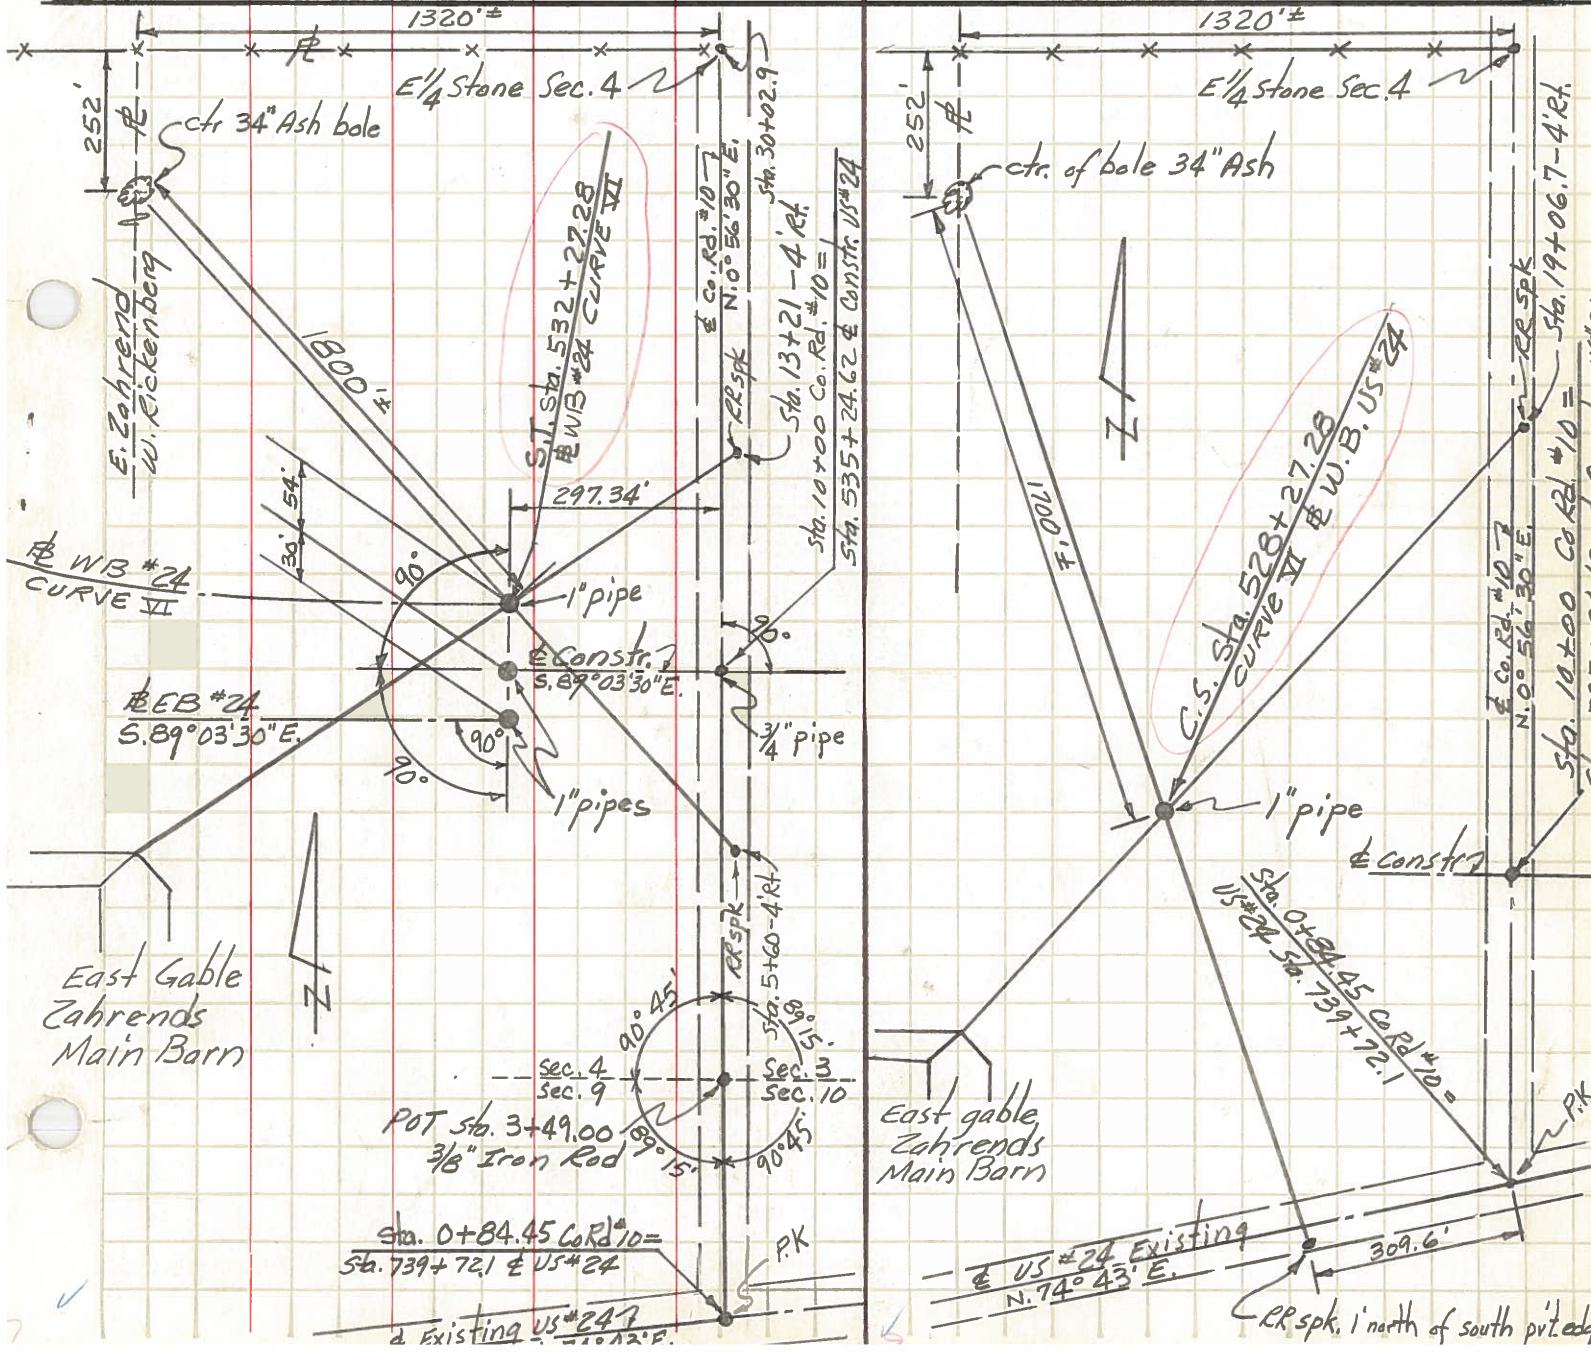 1320'±
E 1/4 Stone Sec. 4
252'
ctr 34" Ash bole
E. Zahrend
W. Rickenberg
1800'±
S.T. Sta. 532+27.28
WB #24 CURVE VI
℄ Co. Rd. #10
N. 0° 56' 30" E.
Sta. 30+02.9
RR spk
Sta. 13+21-4' Rt.
Sta. 10+00 Co. Rd. #10 =
Sta. 535+24.62 ℄ Constr. US #24
297.34'
54'
30'
90°
WB #24
CURVE VI
1" pipe
90°
℄ Constr.
S. 89° 03' 30" E.
EB #24
S. 89° 03' 30" E.
90°
90°
3/4" pipe
1" pipes
East Gable
Zahrends
Main Barn
N
RR spk
Sta. 5+60-4' Rt
90° 45'
89° 15'
Sec. 4
Sec. 9
Sec. 3
Sec. 10
POT Sta. 3+49.00
3/8" Iron Rod
89° 15'
90° 45'
Sta. 0+84.45 Co Rd #10 =
Sta. 739+72.1 ℄ US #24
P.K
℄ Existing US #24
1320'±
E 1/4 Stone Sec. 4
252'
ctr. of bole 34" Ash
N
1700'±
C.S. Sta. 528+27.28
CURVE VI W.B. US #24
RR spk
Sta. 19+06.7-4' Rt.
℄ Co. Rd. #10
N. 0° 56' 30" E.
Sta. 10+00 Co Rd #10 =
1" pipe
℄ Constr.
Sta. 0+84.45 Co Rd #10 =
US #24 Sta. 739+72.1
East gable
Zahrends
Main Barn
P.K
℄ US #24 Existing
N. 74° 43' E.
309.6'
RR spk. 1' north of south pv't edg